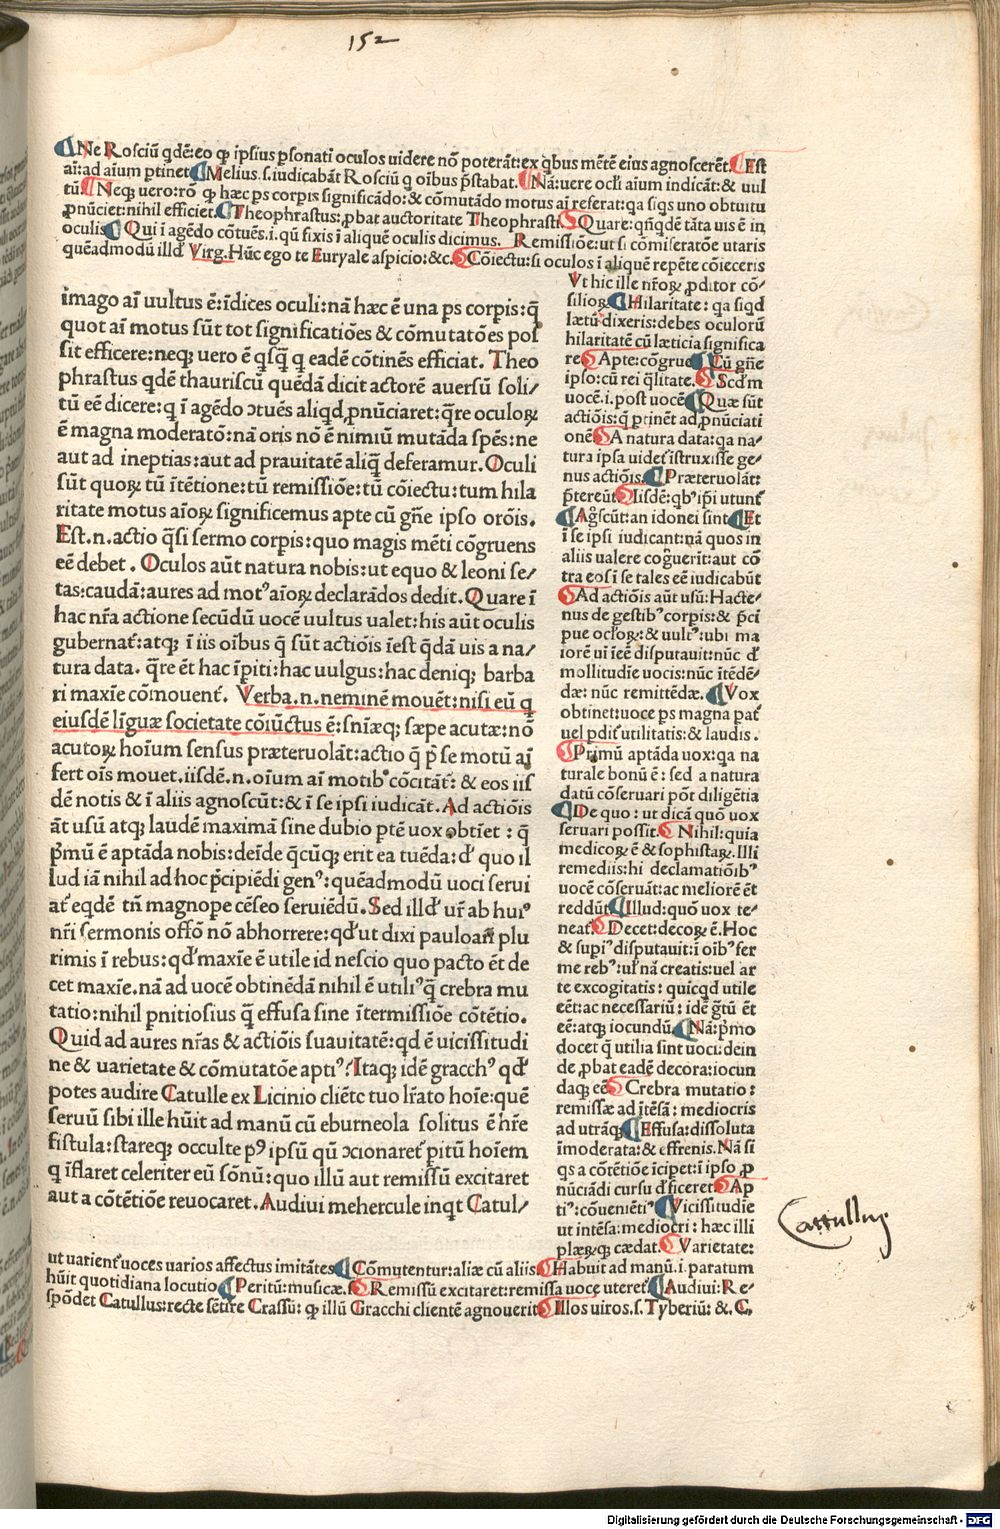 152
Ne Rosciū qdē: eo ꝙ ipsius psonati oculos uidere nō poterāt: ex qbus mētē eius agnoscerēt. Est
ai: ad aīum ptinet Melius .s. iudicabāt Rosciū q oībus pstabat. Nā: uere ocłi aīum indicāt: & uul
tū. Neqꝫ uero: rō ꝙ hæc ps corpis significādo: & cōmutādo motus ai referat: qa siqs uno obtuitu
ꝓnūciet: nihil efficiet. Theophrastus: ꝓbat auctoritate Theophrasti. Quare: qñqdē tāta uis ē in
oculis Qui ī agēdo cōtuēs .i. qū fixis ī aliquē oculis dicimus. Remissiōe: ut si cōmiseratōe utaris
quēadmodū illđ Virg. Hūc ego te Euryale aspicio: &c. Cōiectu: si oculos ī aliquē repēte cōieceris
imago aī uultus ē: īdices oculi: nā hæc ē una ps corpis: q̄
quot aī motus sūt tot significatiōes & cōmutatōes pos
sit efficere: neqꝫ uero ē qsq̄ q eadē cōtinēs efficiat. Theo
phrastus qdē thauriscū quēdā dicit actorē auersū soli/
tū eē dicere: q ī agēdo ɔtuēs aliqd ꝓnūciaret: qre oculoꝝ
ē magna moderatō: nā oris nō ē nimiū mutāda spēs: ne
aut ad ineptias: aut ad prauitatē aliq̄ deferamur. Oculi
sūt quoꝝ tū ītētione: tū remissiōe: tū cōiectu: tum hila
ritate motus aīoꝝ significemus apte cū gñe ipso orōis.
Est .n. actio q̄si sermo corpis: quo magis mēti cōgruens
eē debet . Oculos aūt natura nobis: ut equo & leoni se/
tas: caudā: aures ad motꝰ aīoꝝ declarādos dedit. Quare ī
hac nr̄a actione secūdū uocē uultus ualet: his aūt oculis
gubernat̄: atqꝫ ī iis oībus q̄ sūt actiōis īest q̄dā uis a na/
tura data. qre ēt hac īpiti: hac uulgus: hac deniqꝫ barba
ri maxīe cōmouent̄. Verba .n. neminē mouēt: nisi eū q
eiusdē līguæ societate cōiūctus ē: snīæqꝫ sæpe acutæ: nō
acutoꝝ hoīum sensus præteruolāt: actio q̄ p̄ se motū aī
fert oīs mouet. iisdē .n. oīum aī motibꝰ cōcitāt̄: & eos iis
dē notis & ī aliis agnoscūt: & ī se ipsi iudicāt. Ad actiōis
āt usū atqꝫ laudē maximā sine dubio ptē uox obtīet : q̄
p̄mū ē aptāda nobis: deīde q̄cūqꝫ erit ea tuēda: đ quo il
lud iā nihil ad hoc p̄cipiēdi genꝰ: quēadmodū uoci serui
at̄ eqdē tñ magnope cēseo seruiēdū. Sed illđ ur̄ ab huiꝰ
nr̄i sermonis offō nō abhorrere: qđ ut dixi pauloañ plu
rimis ī rebus: qđ maxīe ē utile id nescio quo pacto ēt de
cet maxīe. nā ad uocē obtinēdā nihil ē utiliꝰ q̄ crebra mu
tatio: nihil pnitiosius q̄ effusa sine ītermissiōe cōtētio.
Quid ad aures nr̄as & actiōis suauitatē: qd ē uicissitudi
ne & uarietate & cōmutatōe aptiꝰ? Itaqꝫ idē gracchꝰ qđ
potes audire Catulle ex Licinio cliētc tuo lr̄ato hoīe: quē
seruū sibi ille hūit ad manū cū eburneola solitus ē hr̄e
fistula: stareqꝫ occulte pꝰ ipsū qū ɔcionaret̄ pitū hoīem
q īflaret celeriter eū sōnū: quo illū aut remissū excitaret
aut a cōtētiōe reuocaret. Audiui mehercule inqt Catul/
Vt hic ille nr̄oꝝ ꝓditor cō/
silioꝝ Hilaritate: qa siqd
lætū dixeris: debes oculorū
hilaritatē cū læticia significa
re Apte: cōgrue Cū gñe
ipso: cū rei q̄litate. Scđm
uocē .i. post uocē Quæ sūt
actiōis: q̄ ptinēt ad ꝓnūciati
onē A natura data: qa na/
tura ipsa uidet̄ īstruxisse ge/
nus actiōis. Præteruolāt:
p̄tereūt Iisdē: qbꝰ ip̄i utunt̄
Agscūt: an idonei sint Et
ī se ipsi iudicant: nā quos in
aliis ualere cogūerīt: aut cō
tra eos ī se tales eē iudicabūt
Ad actiōis aūt usū: Hacte/
nus de gestibꝰ corpis: & p̄ci
pue ocłoꝝ: & uultꝰ: ubi ma
iorē ui īeē disputauit: nūc đ
mollitudīe uocis: nūc ītēdē/
dæ: nūc remittēdæ. Vox
obtinet: uoce ps magna pat̄
uel pdit̄ utilitatis: & laudis.
Primū aptāda uox: qa na
turale bonū ē: sed a natura
datū cōseruari pōt diligētia
De quo: ut dicā quō uox
seruari possit. Nihil: quia
medicoꝝ ē & sophistaꝝ. Illi
remediis: hi declamatiōibꝰ
uocē cōseruāt: ac meliorē ēt
reddūt Illud: quō uox te/
neat̄. Decet: decoꝝ ē. Hoc
& supiꝰ disputauit: ī oībꝰ fer
me rebꝰ: uł nā creatis: uel ar
te excogitatis: quicqd utile
eēt: ac necessariū: idē gtū ēt
eē: atqꝫ iocundū. Nā: p̄mo
docet q̄ utilia sint uoci: dein
de ꝓbat eadē decora: iocun
daqꝫ eē Crebra mutatio:
remissæ ad ītēsā: mediocris
ad utrāqꝫ Effusa: dissoluta
īmoderata: & effrenis. Nā si
qs a cōtētiōe īcipet: ī ipso ꝓ
nūciādi cursu đficeret. Ap
tiꝰ: cōueniētiꝰ Vicissitudīe
ut intēsa: mediocri: hæc illi
plæꝝqꝫ cædat. Varietate:
ut uarient̄ uoces uarios affectus imitātes Cōmutentur: aliæ cū aliis. Habuit ad manū .i. paratum
hūit quotidiana locutio Peritū: musicæ .s. Remissū excitaret: remissa uoce uteret̄ Audiui: Re/
spōdet Catullus: recte sētire Crassū: ꝙ illū Gracchi clientē agnouerit Illos uiros .s. Tyberiū: &. C.
Cattullus.
Digitalisierung gefördert durch die Deutsche Forschungsgemeinschaft - DFG